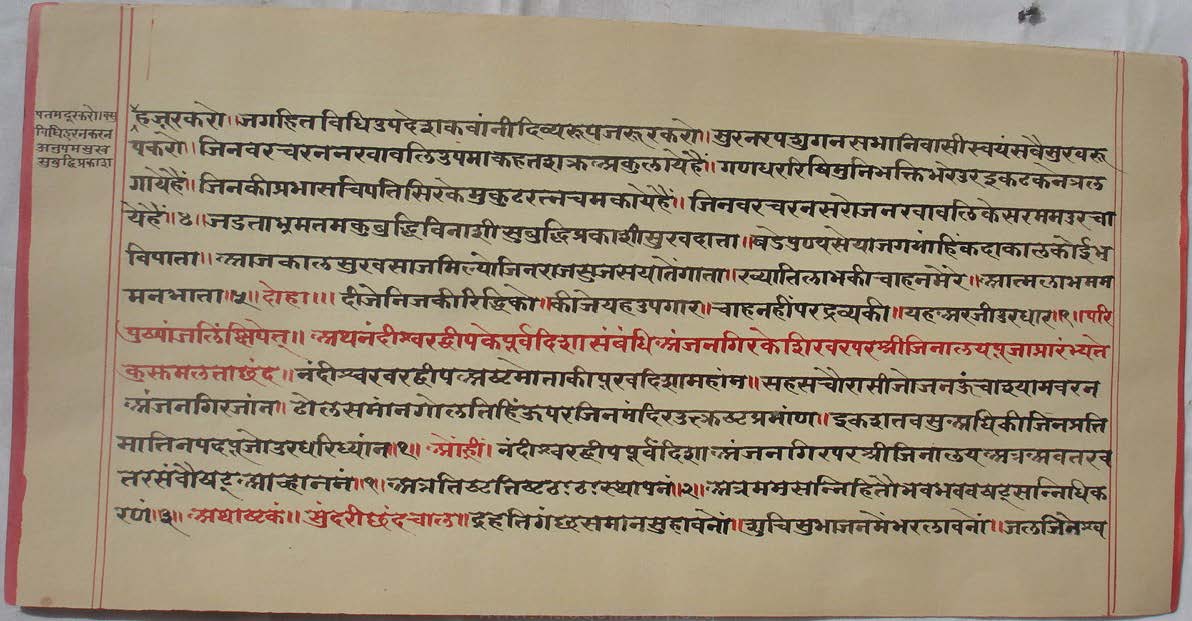 पतमदूरकरो॥
विधिहरनकरन
अनुपमसुख
सुबुद्धिप्रकाश
हजूरकरो॥जगहितविधिउपदेशकवांनीदिव्यरूपजरूरकरो॥सुरनरपशुगनसभानिवासीस्वयंसवैसुखरू
पकरो॥जिनवरचरननखावलिउपमाकहतशक्रअकुलायेहैं॥गणधररिषिमुनिभक्तिभरेउरइकटकनत्रल
गायेहैं॥जिनकीप्रभासचिपतिसिरकेमुकुटरत्नचमकायेहैं॥जिनवरचरनसरोजनखावलिकेसरममउरचा
येहैं॥४॥जडताभ्रमतमकुबुद्धिविनाशीसुबुद्धिप्रकाशीसुखदाता॥बडेपुण्यसेयाजगमांहिंकदाकालकोईभ
विपाता॥आजकालसुखसाजमिल्योजिनराजसुजसयातेंगाता॥ख्यातिलाभकीचाहनमेरे॥आत्मलाभमम
मनभाता॥५॥दोहा॥॥दीजेनिजकीरिद्धिको॥कीजियहउपगार॥चाहनहींपरद्रव्यकी॥यहअरजीउरधार॥१॥परि
पुष्पांजलिंक्षिपेत्॥अथनंदीश्वरद्वीपकेपूर्वदिशासंबंधिअंजनगिरकेशिखरपरश्रीजिनालयपूजाप्रारंभ्यते
कुसमलताछंद॥नंदीश्वरवरद्वीपअष्टमोताकीपूरवदिशामहांन॥सहसचौरासीजोजनऊंचाश्यामवरन
अंजनगिरजांन॥ढोलसमांनगोलतिहिंऊपरजिनमंदिरउत्क्रष्टप्रमांण॥इकशतवसुअधिकीजिनप्रति
मातिनपदपूजोउरधरिध्यांन॥१॥ओंह्रीं॥नंदीश्वरद्वीपपूर्वदिशाअंजनगिरपरश्रीजिनालयअत्रअवतरव
तरसंवौषट्आव्हाननं॥१॥अत्रतिष्टतिष्टठःठःस्थापनं॥२॥अत्रममसन्निहितौभवभववषट्सन्निधिक
रणं॥३॥अथाष्टकं॥सुंदरीछंदचाल॥द्रहतिगंछसमानसुहावनों॥शुचिसुभाजनमेंभरलावनों॥जलजिनेश्व